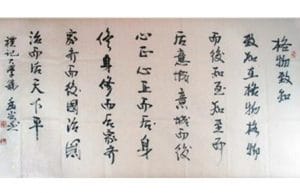 格物致知
致知在格物格物
而後知至知至而
后意誠意誠而後
心正心正而后身
修身修而后家齐
家齐而後國治國
治而后天下平
禮记大学篇